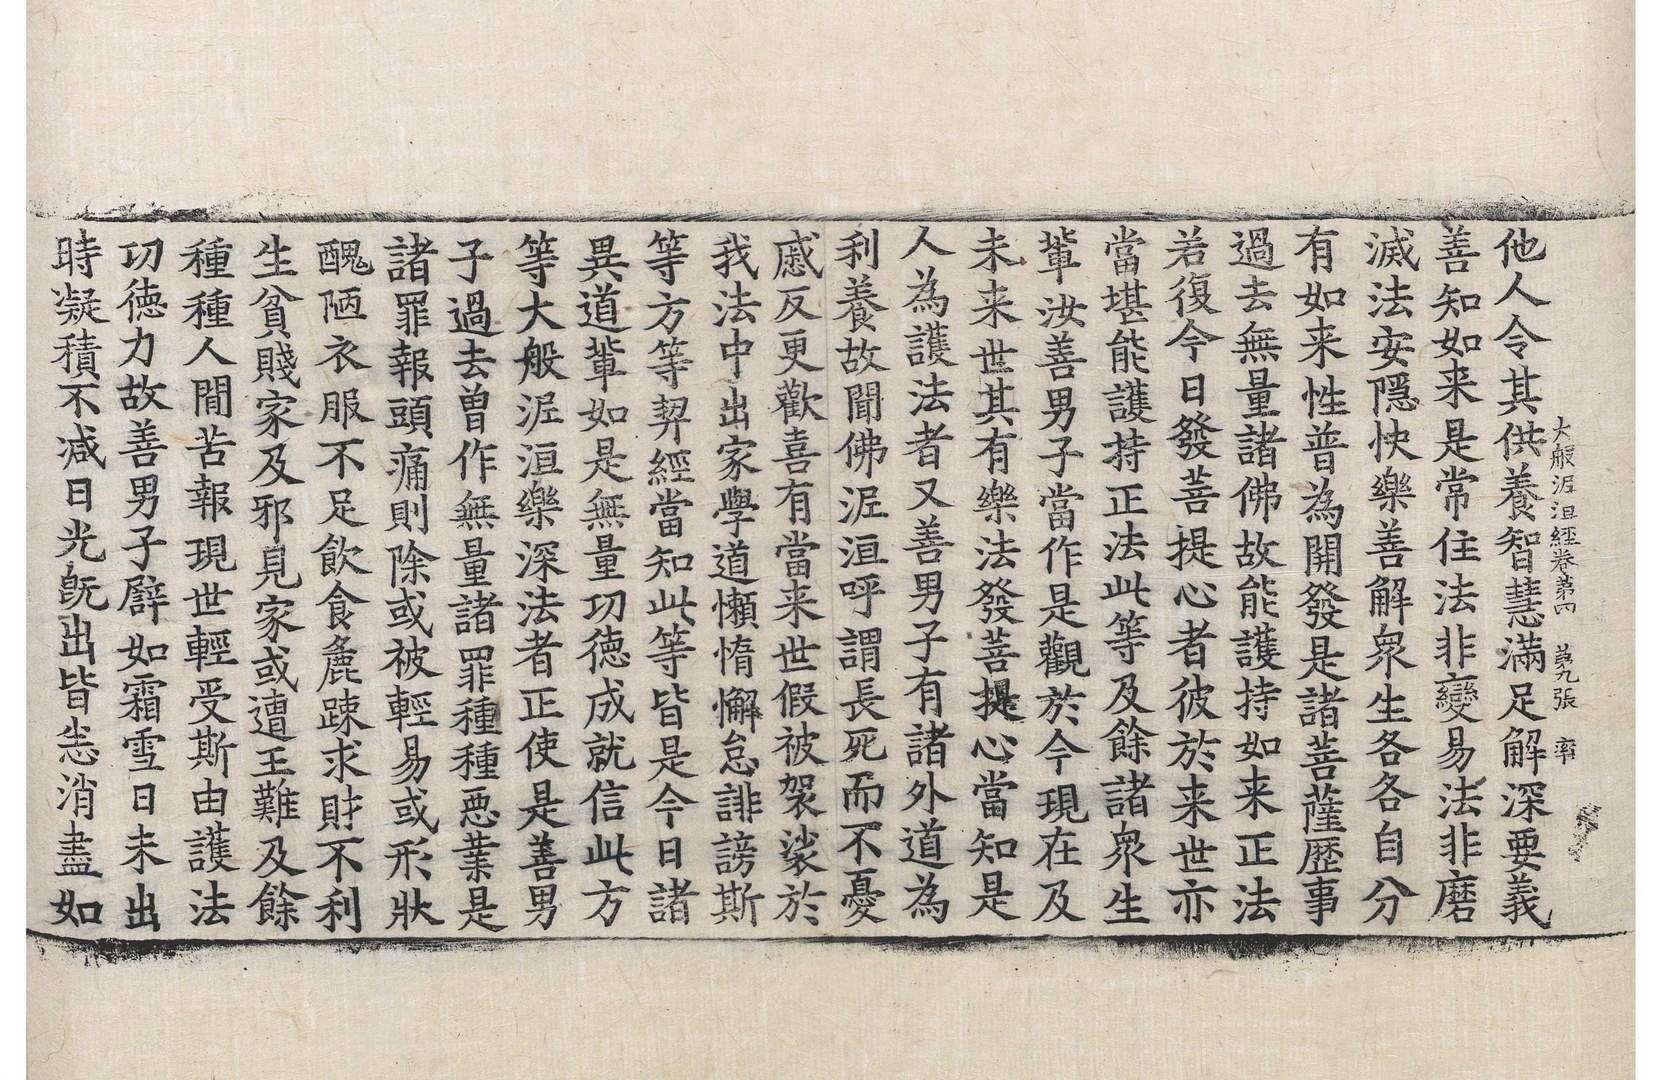 大般泥洹經卷第四 第九張 率
他人令其供養智慧滿足解深要義
善知如来是常住法非變易法非磨
滅法安隱快樂善解衆生各各自分
有如来性普為開發是諸菩薩歴事
過去無量諸佛故能護持如来正法
若復今日發菩提心者彼於来世亦
當堪能護持正法此等及餘諸衆生
輩汝善男子當作是觀於今現在及
未来世其有樂法發菩提心當知是
人為護法者又善男子有諸外道為
利養故聞佛泥洹呼謂長死而不憂
慼反更歡喜有當来世假被袈裟於
我法中出家學道懶惰懈怠誹謗斯
等方等契經當知此等皆是今日諸
異道輩如是無量功德成就信此方
等大般泥洹樂深法者正使是善男
子過去曽作無量諸罪種種惡業是
諸罪報頭痛則除或被輕易或形狀
醜陋衣服不足飲食麁踈求財不利
生貧賤家及邪見家或遭王難及餘
種種人間苦報現世輕受斯由護法
功德力故善男子譬如霜雪日未出
時凝積不減日光旣出皆悉消盡如